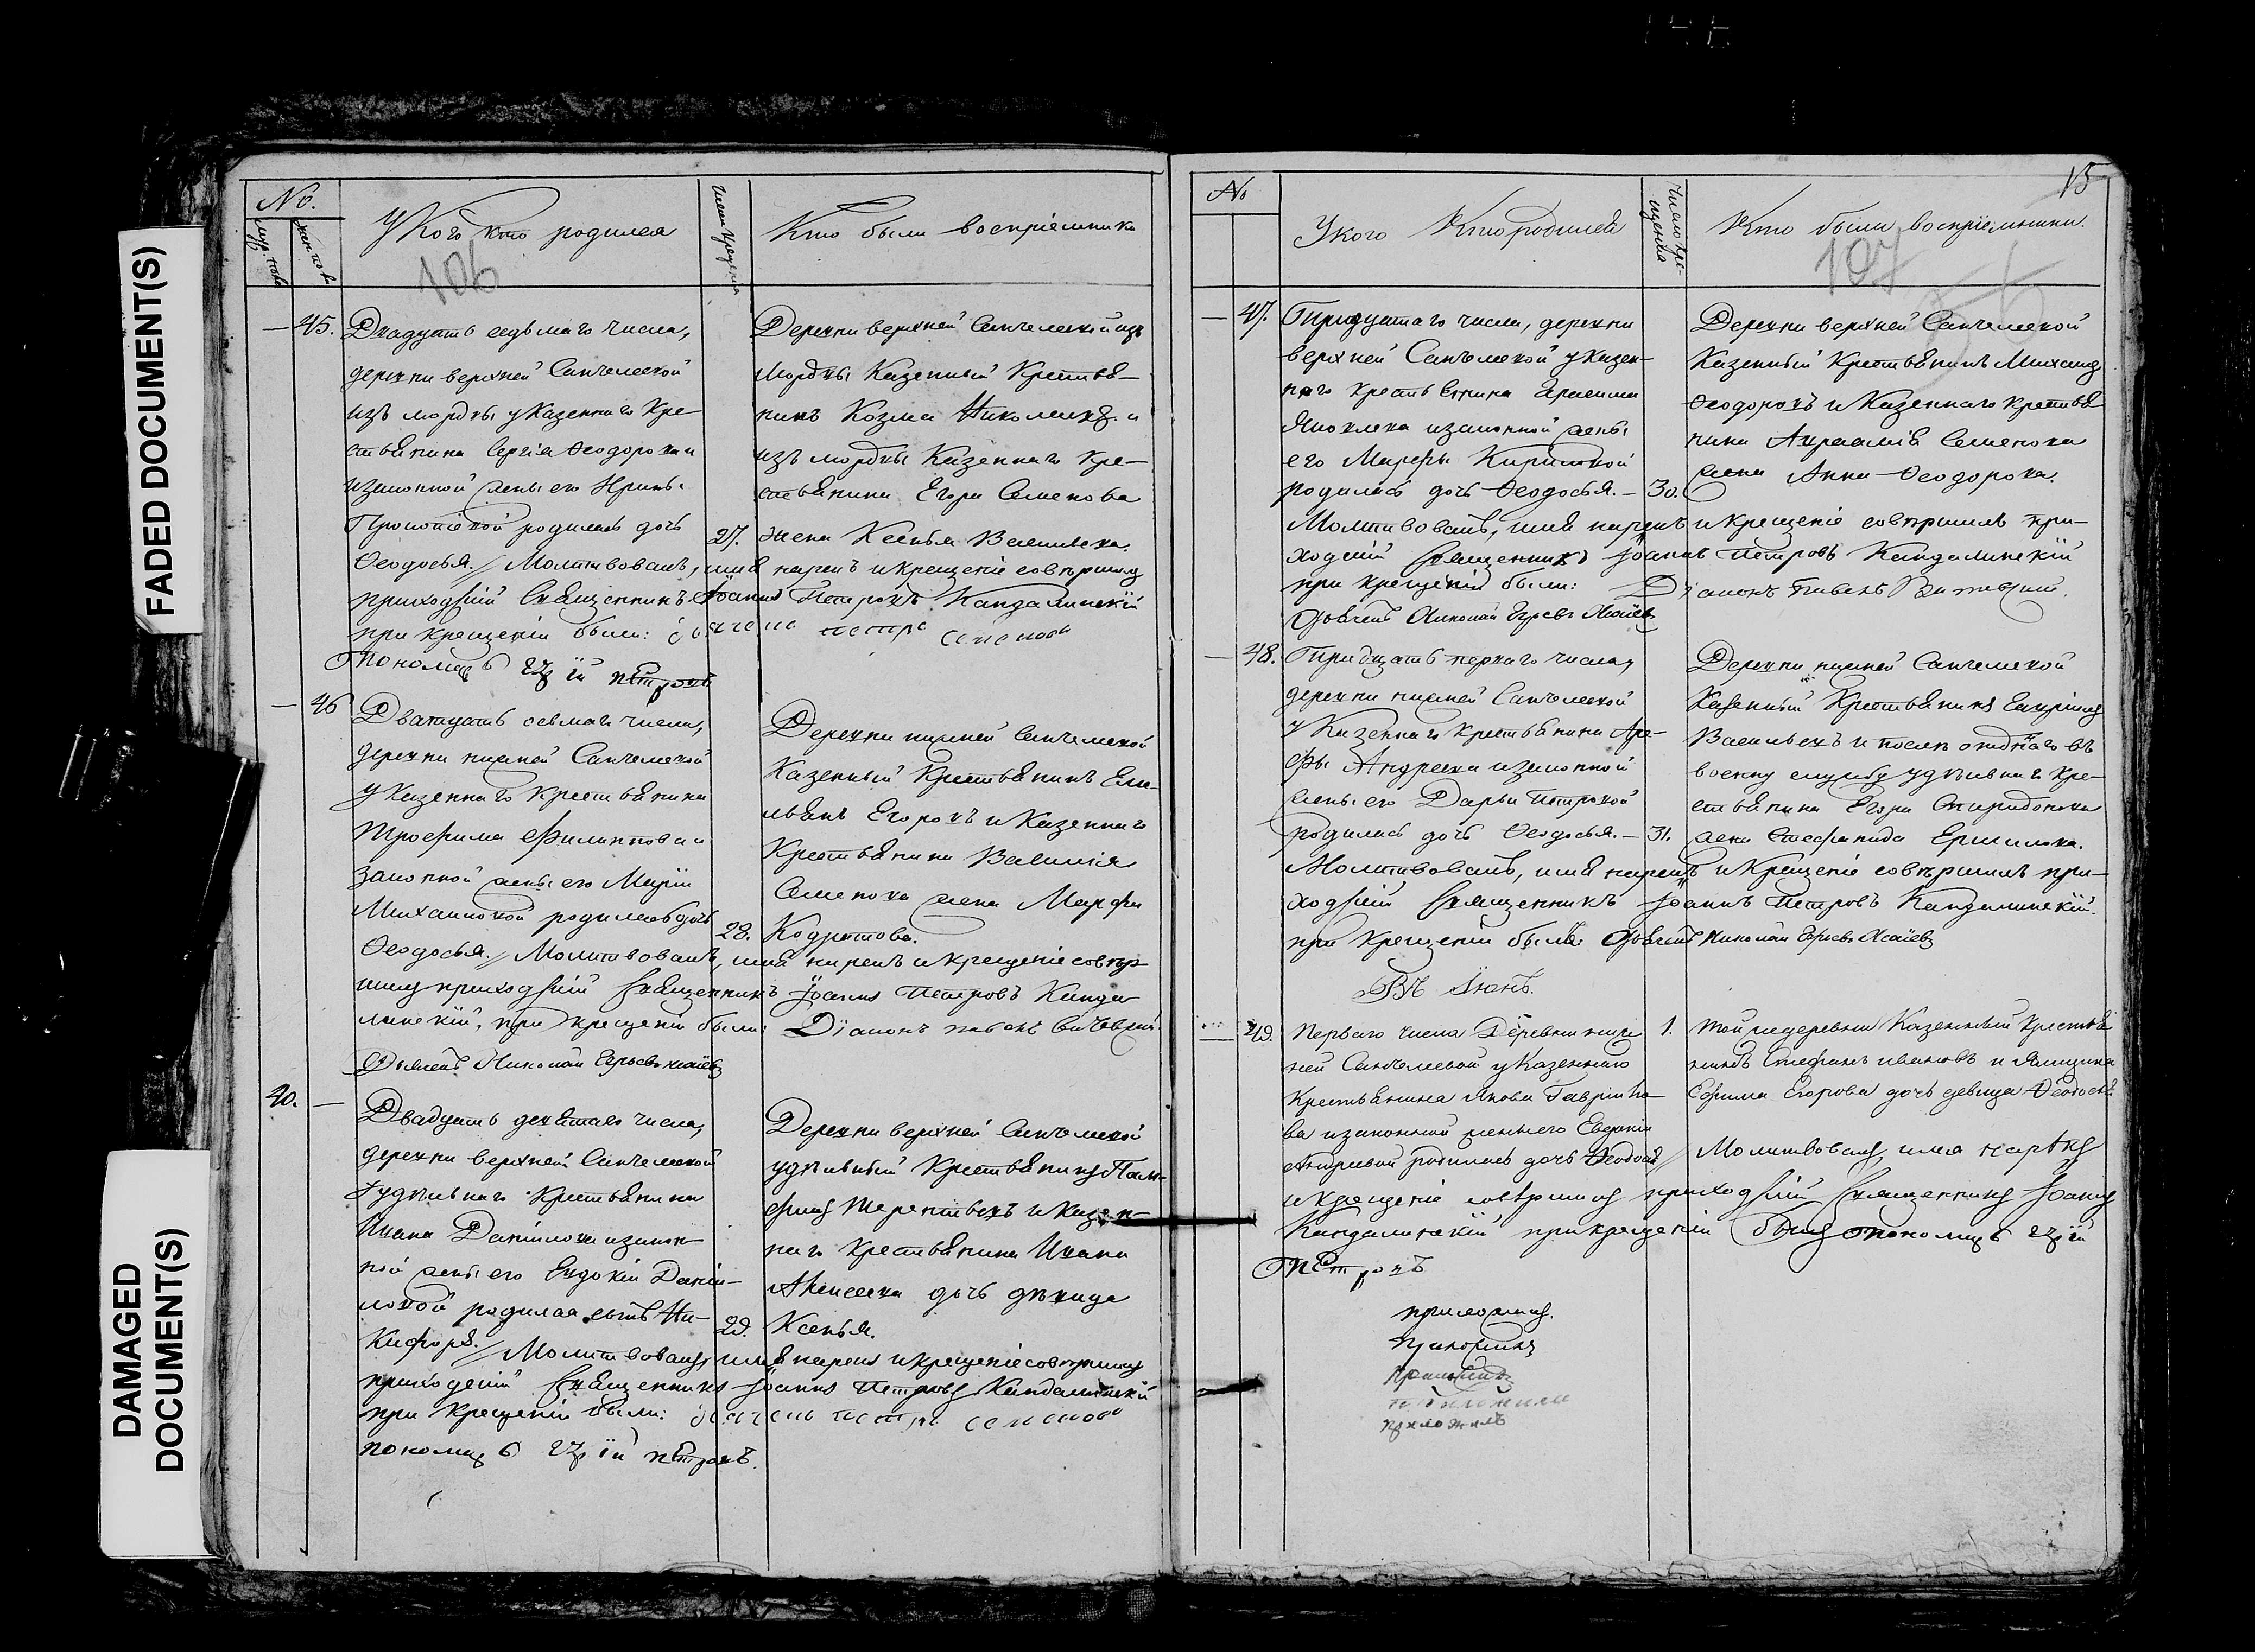 FADED DOCUMENT(S)
DAMAGED
DOCUMENT(S)
No.
муж. пола
жен. пола
У Кого кто родился
Число Крещенія
Кто были воспріемники
106
— 45.
Двадцать седьмаго числа,
деревни верхней Санчелеевой
изъ мордвы у Казеннаго Кре-
стьянина Сергія Ѳеодорова и
законной жены его Ирины
Прокопіевой родилась дочь
Ѳеодосья. // Молитвовалъ, имя нарекъ и крещеніе совершилъ
приходскій Священникъ Іоаннъ Петровъ Кандалинскій
при крещеніи были: дьячекъ петръ семеновъ
пономарь петровъ
27.
Деревни верхней Санчелеевой изъ
мордвы Казенный Крестья-
нинъ Козма Николаевъ и
изъ мордвы Казеннаго Кре-
стьянина Егора Семенова
жена Ксенья Васильева.
— 46
Двадцать осьмаго числа,
деревни нижней Санчелеевой
у Казеннаго Крестьянина
Трофима Филиппова и
законной жены его Маріи
Михайловой родилась дочь
Ѳеодосья. // Молитвовалъ, имя нарекъ и крещеніе совер-
шилъ приходскій Священникъ Іоаннъ Петровъ Канда-
линскій, при крещеніи были: Діаконъ павелъ
Дьячекъ Николай
28.
Деревни нижней Санчелеевой
Казенный Крестьянинъ Еме-
льянъ Егоровъ и Казеннаго
Крестьянина Василія
Семенова жена Марфа
Кодратова.
40. —
Двадцать девятаго числа,
деревни верхней Санчелеевой
у удѣльнаго Крестьянина
Ивана Данилова и закон-
ной жены его Евдокіи Дани-
ловой родился сынъ Ни-
кифоръ. // Молитвовалъ, имя нарекъ и крещеніе совершилъ
приходскій Священникъ Іоаннъ Петровъ Кандалинскій
при крещеніи были: дьячекъ петръ семеновъ
пономарь петровъ.
29.
Деревни верхней Санчелеевой
удѣльный Крестьянинъ Пам-
филъ Терентьевъ и Казен-
наго Крестьянина Ивана
Алексеева дочь дѣвица
Ксенья.
15
No
У кого Кто родился
Число Кре-
щенія
Кто были воспріемники.
107
— 47.
Тридцатаго числа, деревни
верхней Санчелеевой у Казен-
наго крестьянина Герасима
Яковлева и законной жены
его Марфы Кириловой
родилась дочь Ѳеодосья. — 30.
Молитвовалъ, имя нарекъ и крещеніе совершилъ при-
ходскій Священникъ Іоаннъ Петровъ Кандалинскій
при крещеніи были: Діаконъ Павелъ
Дьячекъ Николай
Деревни верхней Санчелеевой
Казенный Крестьянинъ Михаилъ
Ѳеодоровъ и Казеннаго крестья-
нина Авраамія Семенова
жена Анна Ѳеодорова.
— 48.
Тридцать перваго числа,
деревни нижней Санчелеевой
у Казеннаго крестьянина Аре-
фы Андреева и законной
жены его Дарьи Петровой
родилась дочь Ѳеодосья. — 31.
Молитвовалъ, имя нарекъ и Крещеніе совершилъ при-
ходскій Священникъ Іоаннъ Петровъ Кандалинскій.
при Крещеніи былъ Дьячекъ Николай
Деревни нижней Санчелеевой
Казенный Крестьянинъ
Васильевъ и послѣ отданнаго въ
военну службу удѣльнаго Кре-
стьянина Егора Спиридонова
жена Стефанида Ермилова.
Въ Іюнѣ.
— 49.
Перваго числа Деревни ниж-
ней Санчелеевой у Казеннаго
Крестьянина Якова Гаврило-
ва и законной жены его Евдокіи
Андреевой родилась дочь Ѳеодосья // Молитвовалъ имя нарѣкъ
и крещеніе совѣршилъ приходскій Священникъ Іоаннъ
Кандалинскій при крещеніи былъ пономарь
Петровъ
1.
Той же деревни Казенный Крестья-
нинъ Стефанъ ивановъ и
Ефима Егорова дочь девица Ѳеодосья
приложилъ